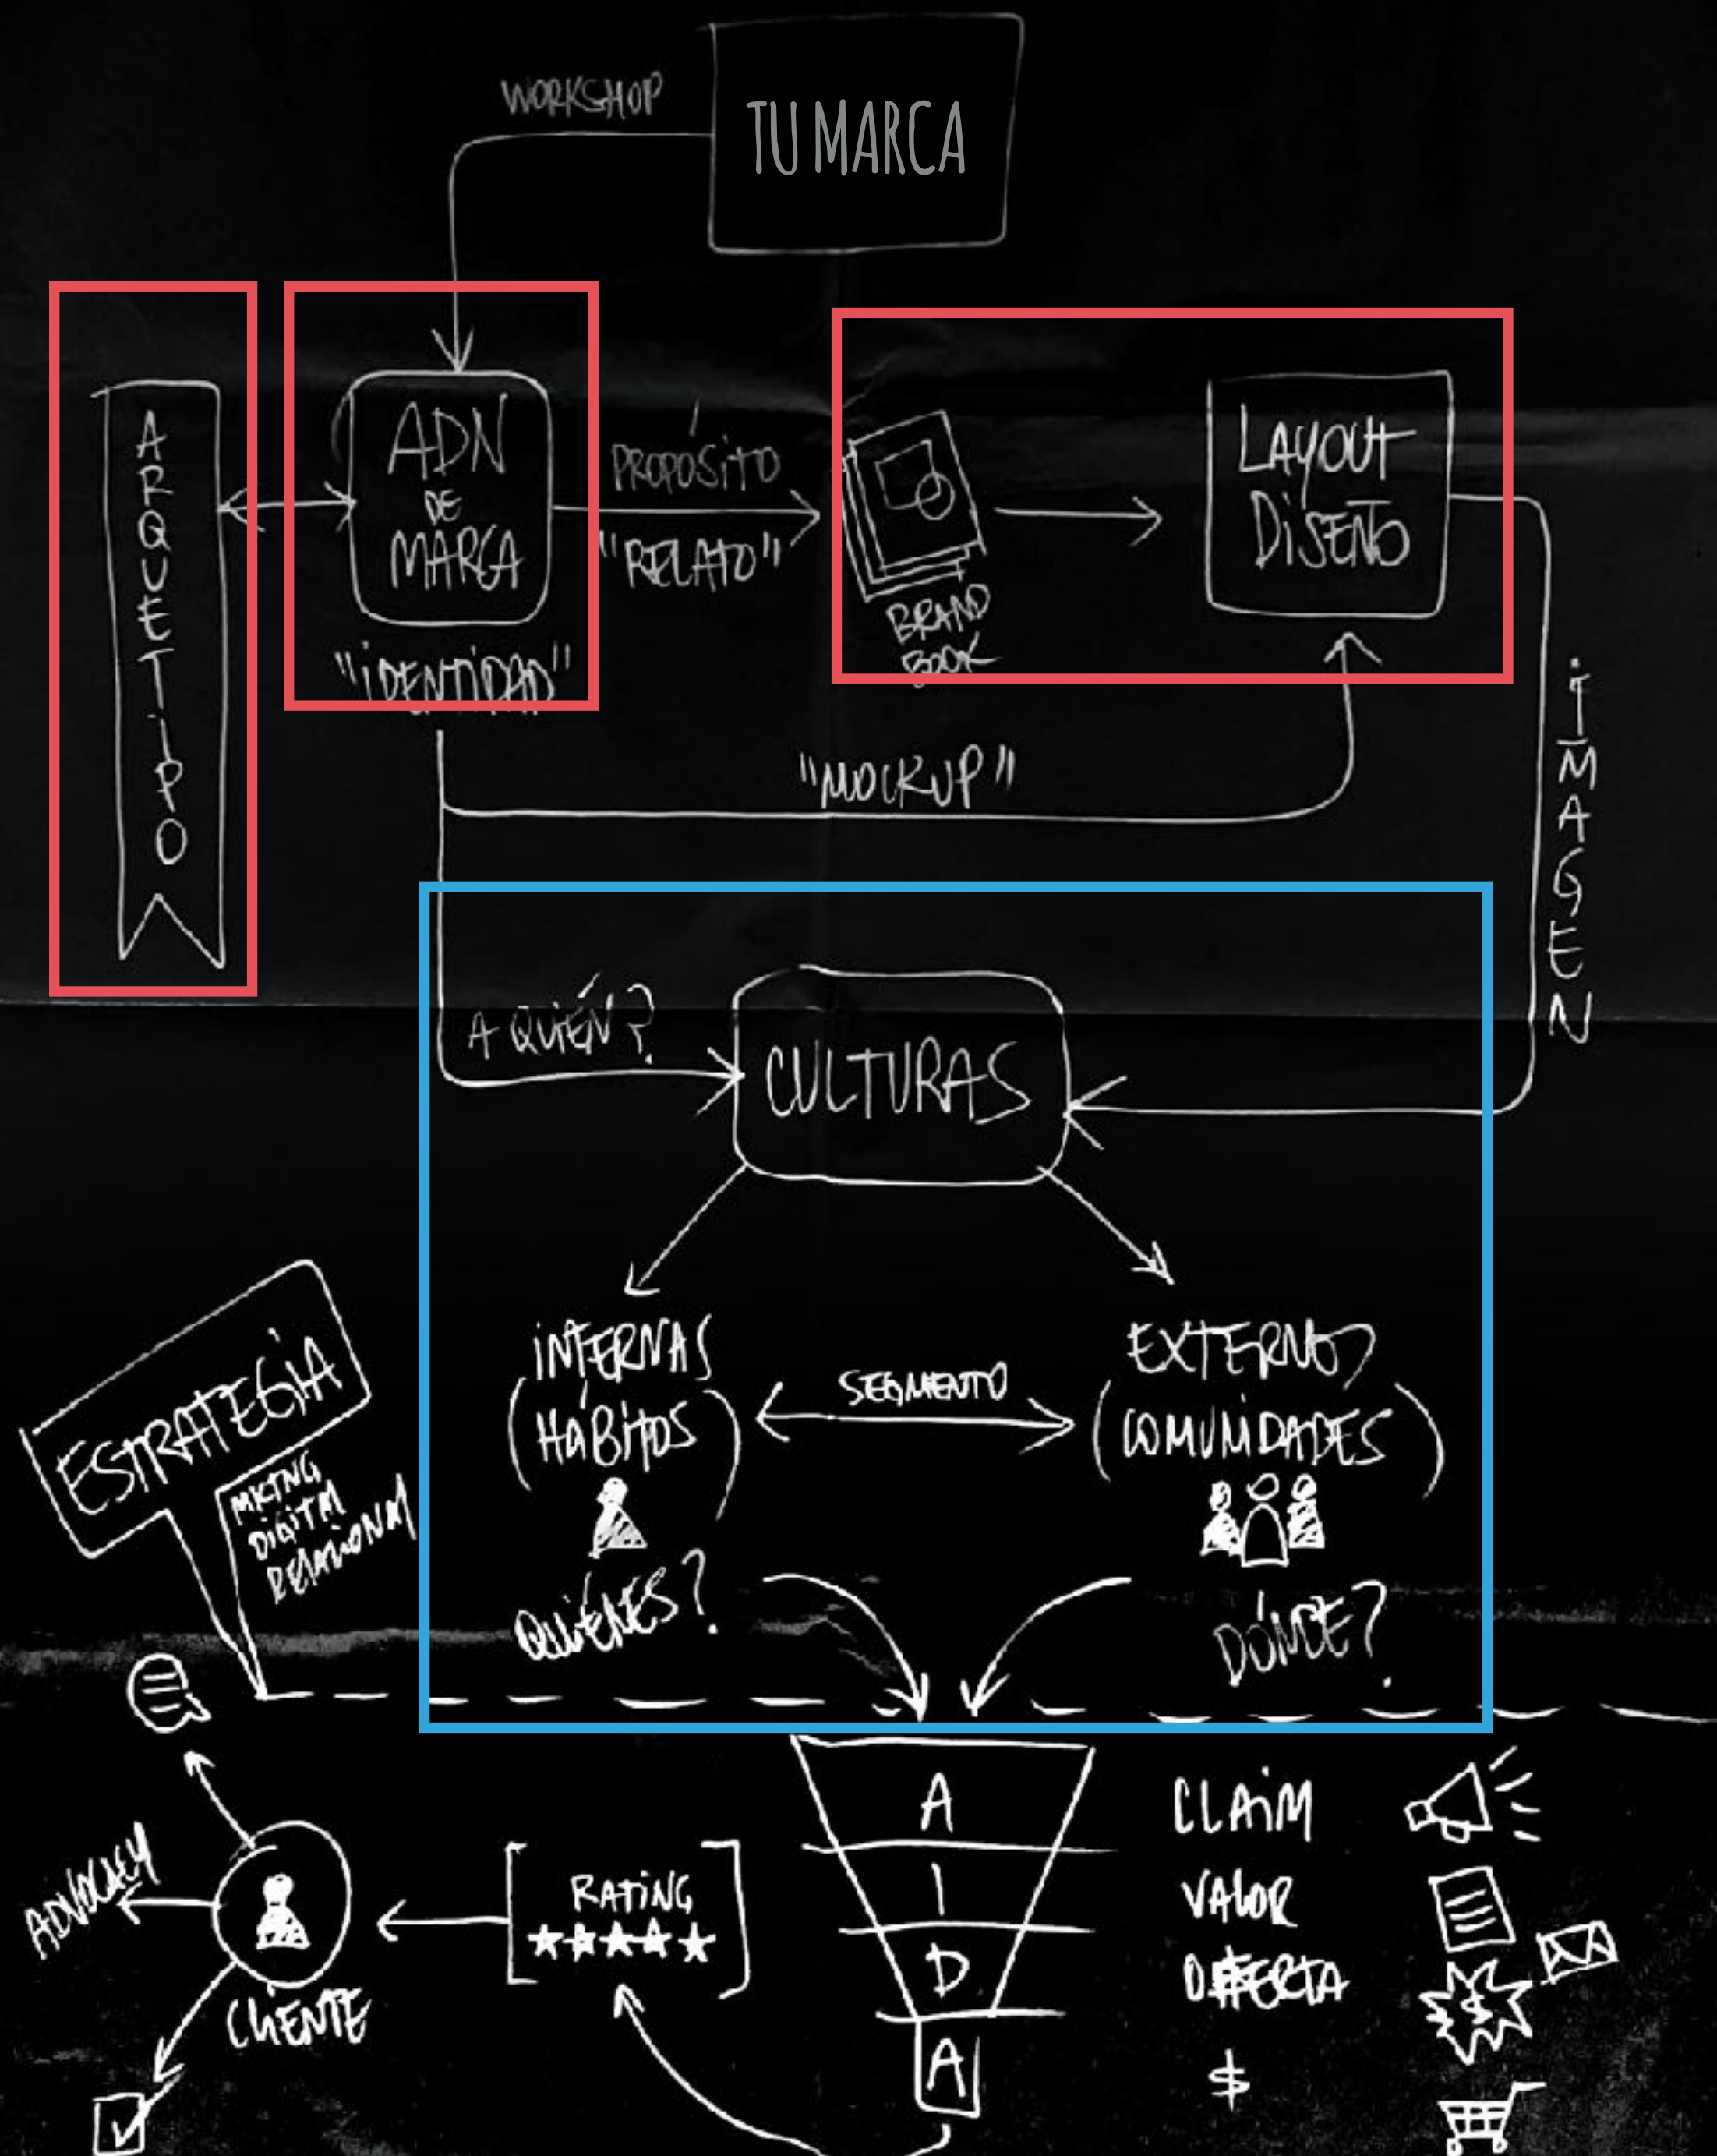 WORKSHOP
TU MARCA
ARQUETIPO
ADN
DE
MARCA
"iDENTiDAD"
PROPÓSiTO
"RELATO"
BRAND
BOOK
LAYOUT
DiSEÑO
"MOCKUP"
iMAGEN
A QUiÉN?
CULTURAS
iNTERNAS
(HÁBiTOS)
QUiÉNES?
SEGMENTO
EXTERNOS
(COMUNiDADES)
DÓNDE?
ESTRATEGiA
MKTNG
DiGiTAL
RELACiONAL
A
I
D
A
CLAiM
VALOR
OFERTA
$
RATiNG
ADVOCACY
CLiENTE